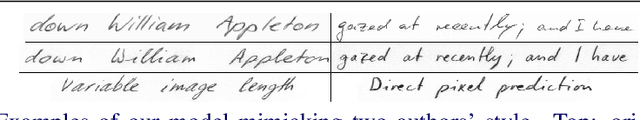 down William Appleton gazed at recently; and I have
down William Appleton gazed at recently; and I have
Variable image length Direct pixel prediction
Examples of our model mimicking two authors' style. Top: